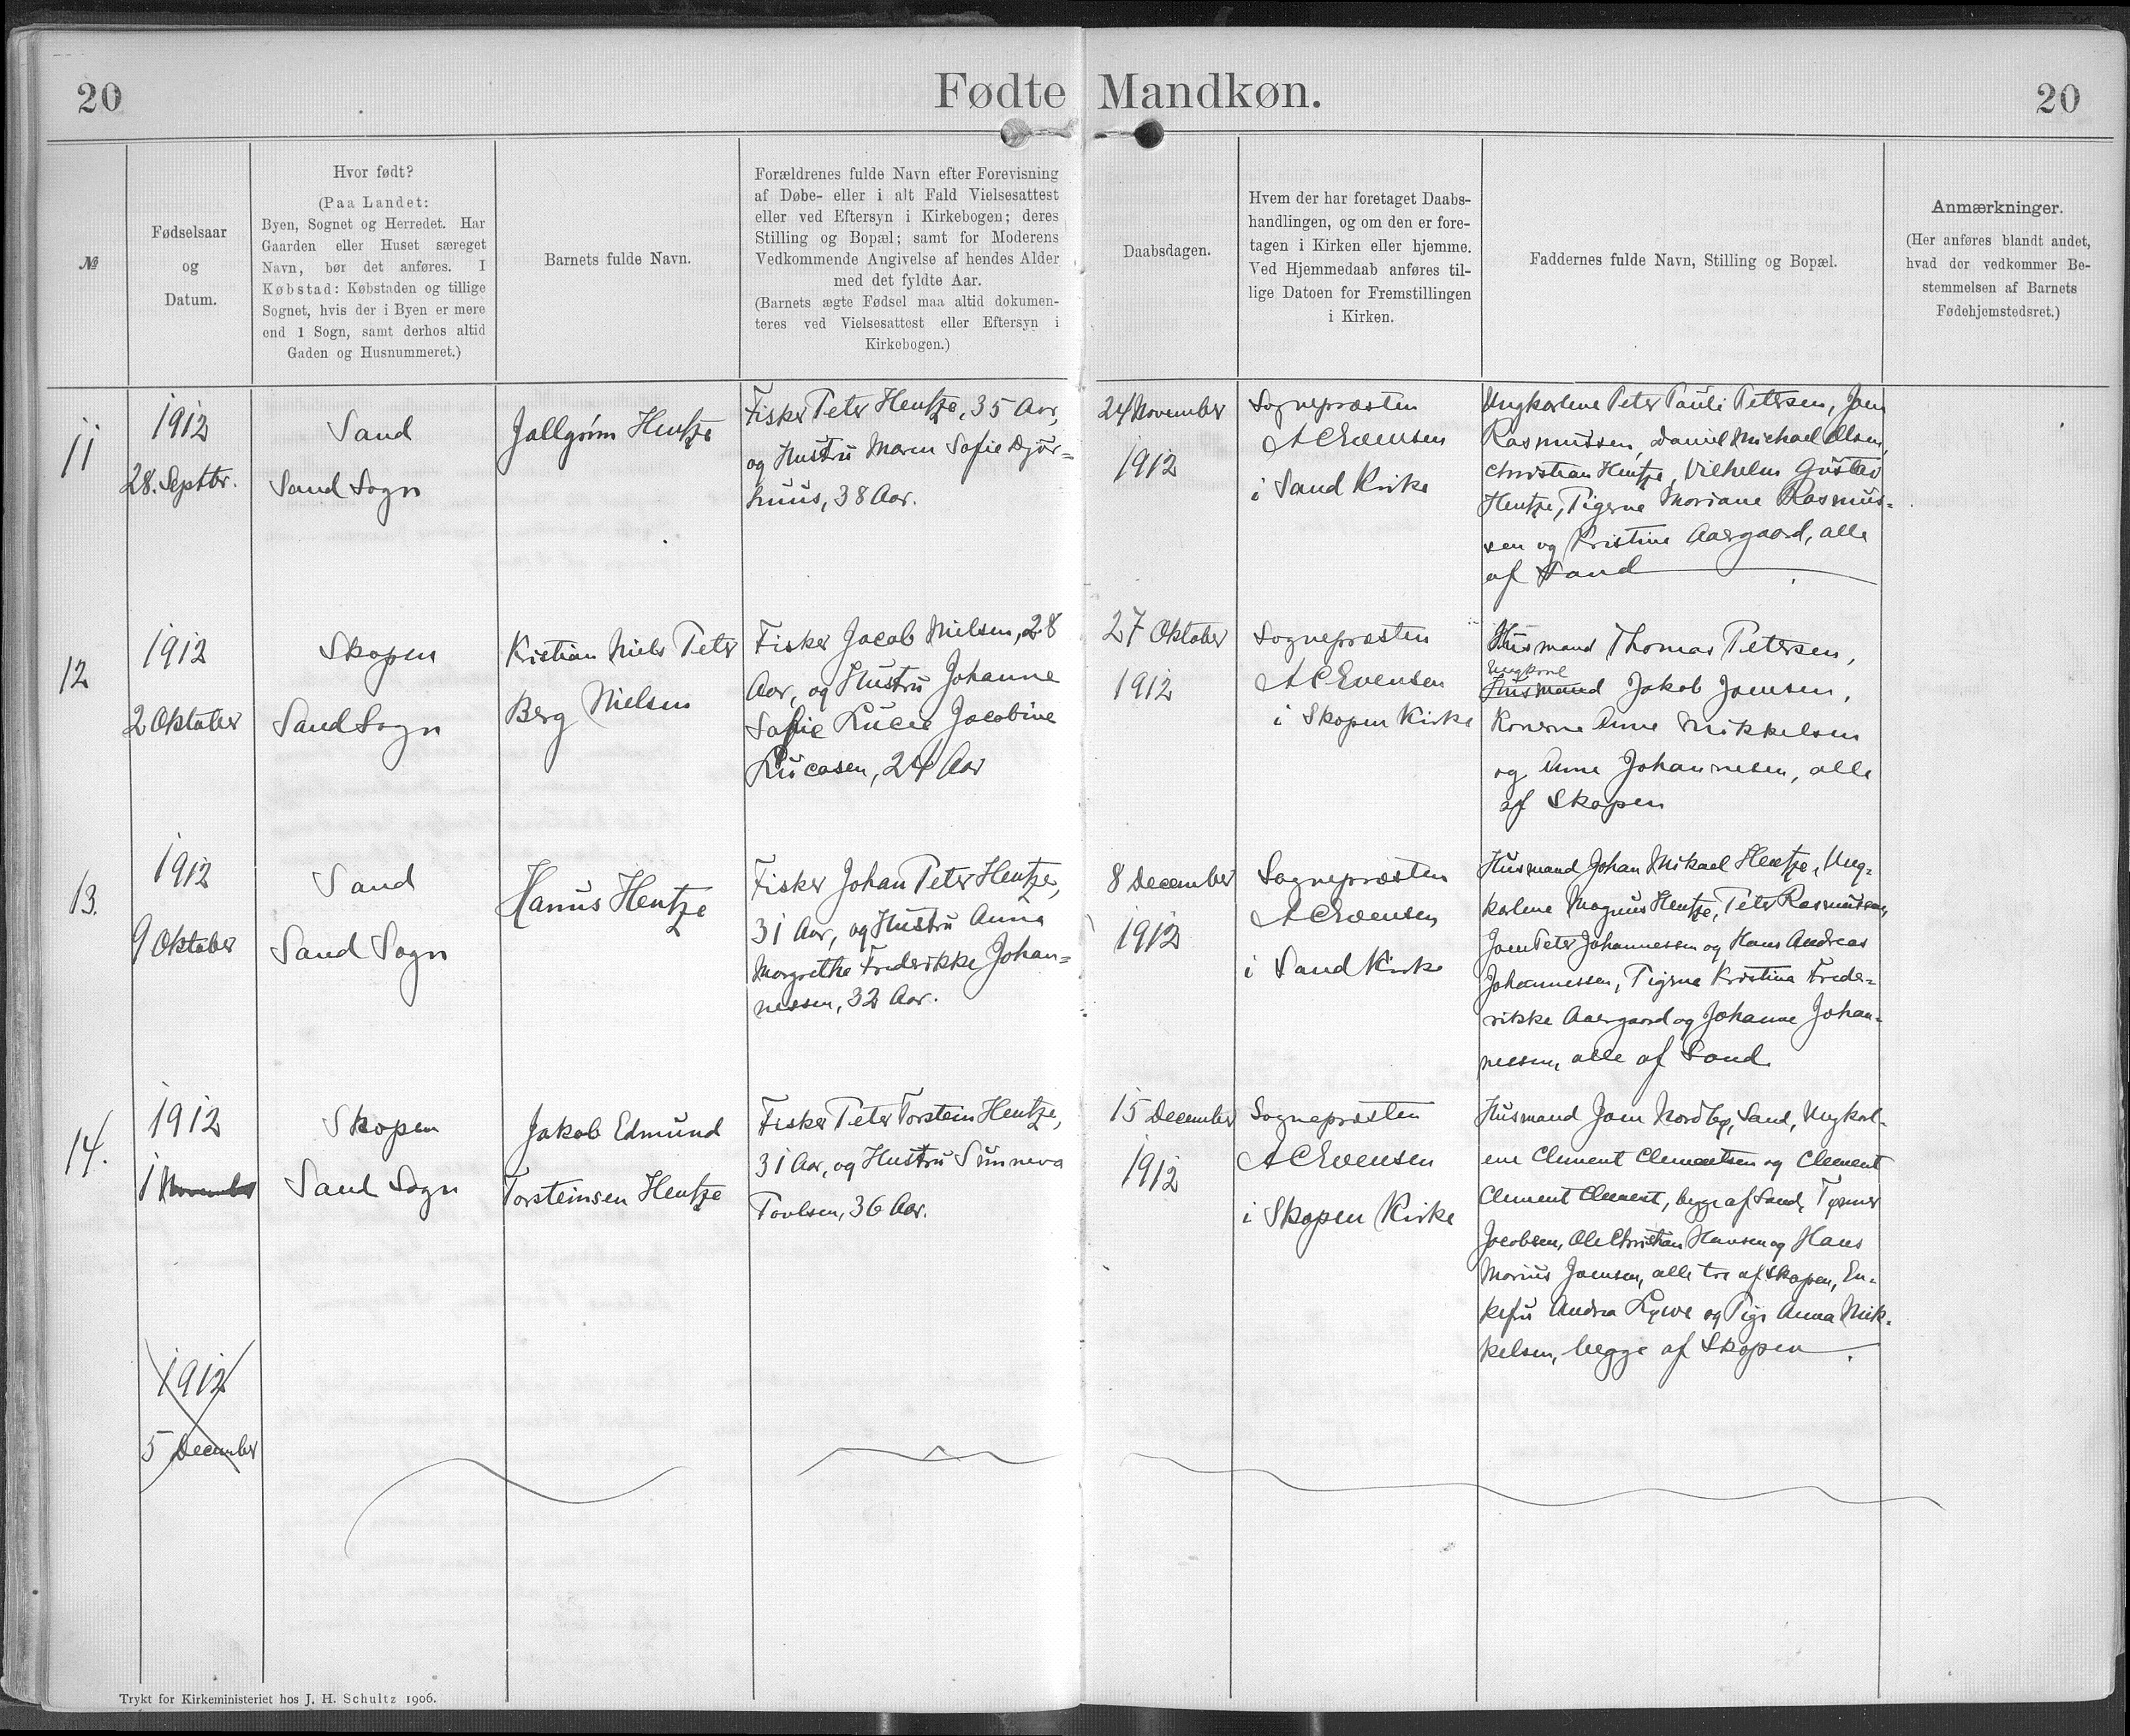 20
Fødte
Mandkøn.
20
№
Fødselsaar
og
Datum.
Hvor født?
(Paa Landet:
Byen, Sognet og Herredet. Har
Gaarden eller Huset særeget
Navn, bør det anføres. I
Købstad: Købstaden og tillige
Sognet, hvis der i Byen er mere
end 1 Sogn, samt derhos altid
Gaden og Husnummeret.)
Barnets fulde Navn.
Forældrenes fulde Navn efter Forevisning
af Døbe- eller i alt Fald Vielsesattest
eller ved Eftersyn i Kirkebogen; deres
Stilling og Bopæl; samt for Moderens
Vedkommende Angivelse af hendes Alder
med det fyldte Aar.
(Barnets ægte Fødsel maa altid dokumen-
teres ved Vielsesattest eller Eftersyn i
Kirkebogen.)
Daabsdagen.
Hvem der har foretaget Daabs-
handlingen, og om den er fore-
tagen i Kirken eller hjemme.
Ved Hjemmedaab anføres til-
lige Datoen for Fremstillingen
i Kirken.
Faddernes fulde Navn, Stilling og Bopæl.
Anmærkninger.
(Her anføres blandt andet,
hvad der vedkommer Be-
stemmelsen af Barnets
Fødehjemstedsret.)
11
1912
28. Septbr.
Sand
Sand Sogn
Jallgrím Hentze
Fisker Peter Hentze, 35 Aar,
og Hustru Maren Sofie Djór=
huus, 38 Aar.
24 November
1912
Sognepræsten
A C Evensen
i Sand Kirke
Ungkarlene Peter Pauli Petersen, Joen
Rasmussen, Daniel Michael Olsen,
Christian Hentze, Vilhelm Gustav
Hentze, Pigerne Mariane Rasmus-
sen og Kristine Aargaard, alle
af Sand
12
1912
2 Oktober
Skopen
Sand Sogn
Kristian Niels Peter
Berg Nielsen
Fisker Jacob Nielsen, 28
Aar, og Hustru Johanne
Sofie Lucie Jacobine
Lucasen, 24 Aar
27 Oktober
1912
Sognepræsten
A C Evensen
i Skopen Kirke
Husmand Thomas Petersen,
Ungkarl
Husmand Jakob Joensen,
Konerne Anne Mikkelsen
og Anne Johannesen, alle
af Skopen
13.
1912
9 Oktober
Sand
Sand Sogn
Hanus Hentze
Fisker Johan Peter Hentze,
31 Aar, og Hustru Anna
Margrethe Frederikke Johan=
nessen, 32 Aar.
8 December
1912
Sognepræsten
A C Evensen
i Sand Kirke
Husmand Johan Mikael Hentze, Ung-
karlene Magnus Hentze, Peter Rasmussen,
Joen Peter Johannessen og Hans Andreas
Johannessen, Pigerne Kristina Frede-
rikke Aargaard og Johanne Johan-
nessen, alle af Sand
14.
1912
1 November
Skopen
Sand Sogn
Jakob Edmund
Torsteinsen Hentze
Fisker Peter Torstein Hentze,
31 Aar, og Hustru Sunneva
Poulsen, 36 Aar.
15 December
1912
Sognepræsten
A C Evensen
i Skopen Kirke
Husmand Joen Nordby, Sand, Ungkarl-
ene Clement Clementsen og Clement
Clement Clement, begge af Sand,
Jacobsen, Ole Christian Hansen og Hans
Marius Joensen, alle tre af Skopen, En-
kefru Andrea og Pige Anna Mik-
kelsen, begge af Skopen
1912
5 December
Trykt for Kirkeministeriet hos J. H. Schultz 1906.